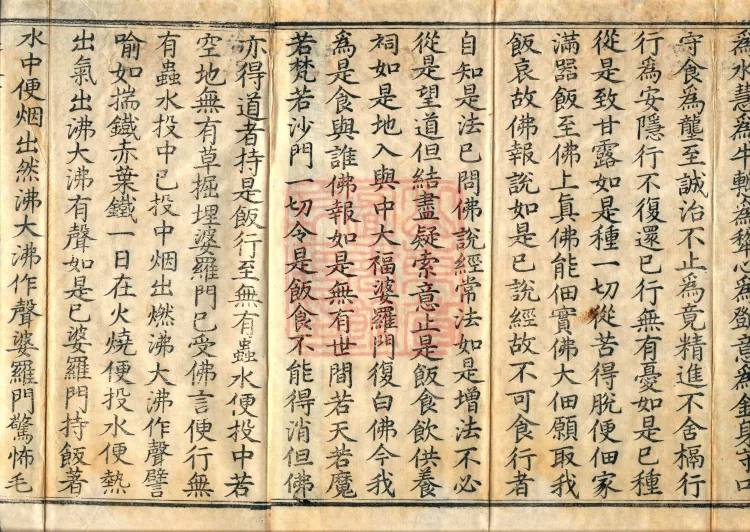 爲水慧爲牛慙爲犂心爲鐙意爲金身守口
守食爲龍至誠治不止爲竟精進不舍楇行
行爲安隱行不復還已行無有憂如是已種
從是致甘露如是種一切從苦得脫便佃家
滿器飯至佛上真佛能佃實佛大佃願取我
飯哀故佛報說如是已說經故不可食行者
自知是法已問佛說經常法如是增法不必
從是望道但結盡疑索意止是飯食飲供養
祠如是地入與中大福婆羅門復白佛今我
爲是食與誰佛報如是無有世間若天若魔
若梵若沙門一切令是飯食不能得消但佛
亦得道者持是飯行至無有蟲水便投中若
空地無有草掘埋婆羅門已受佛言便行無
有蟲水投中已投中烟出燃沸大沸作聲譬
喻如揣鐵赤葉鐵一日在火燒便投水便熱
出氣出沸大沸有聲如是已婆羅門持飯著
水中便烟出然沸大沸作聲婆羅門驚怖毛